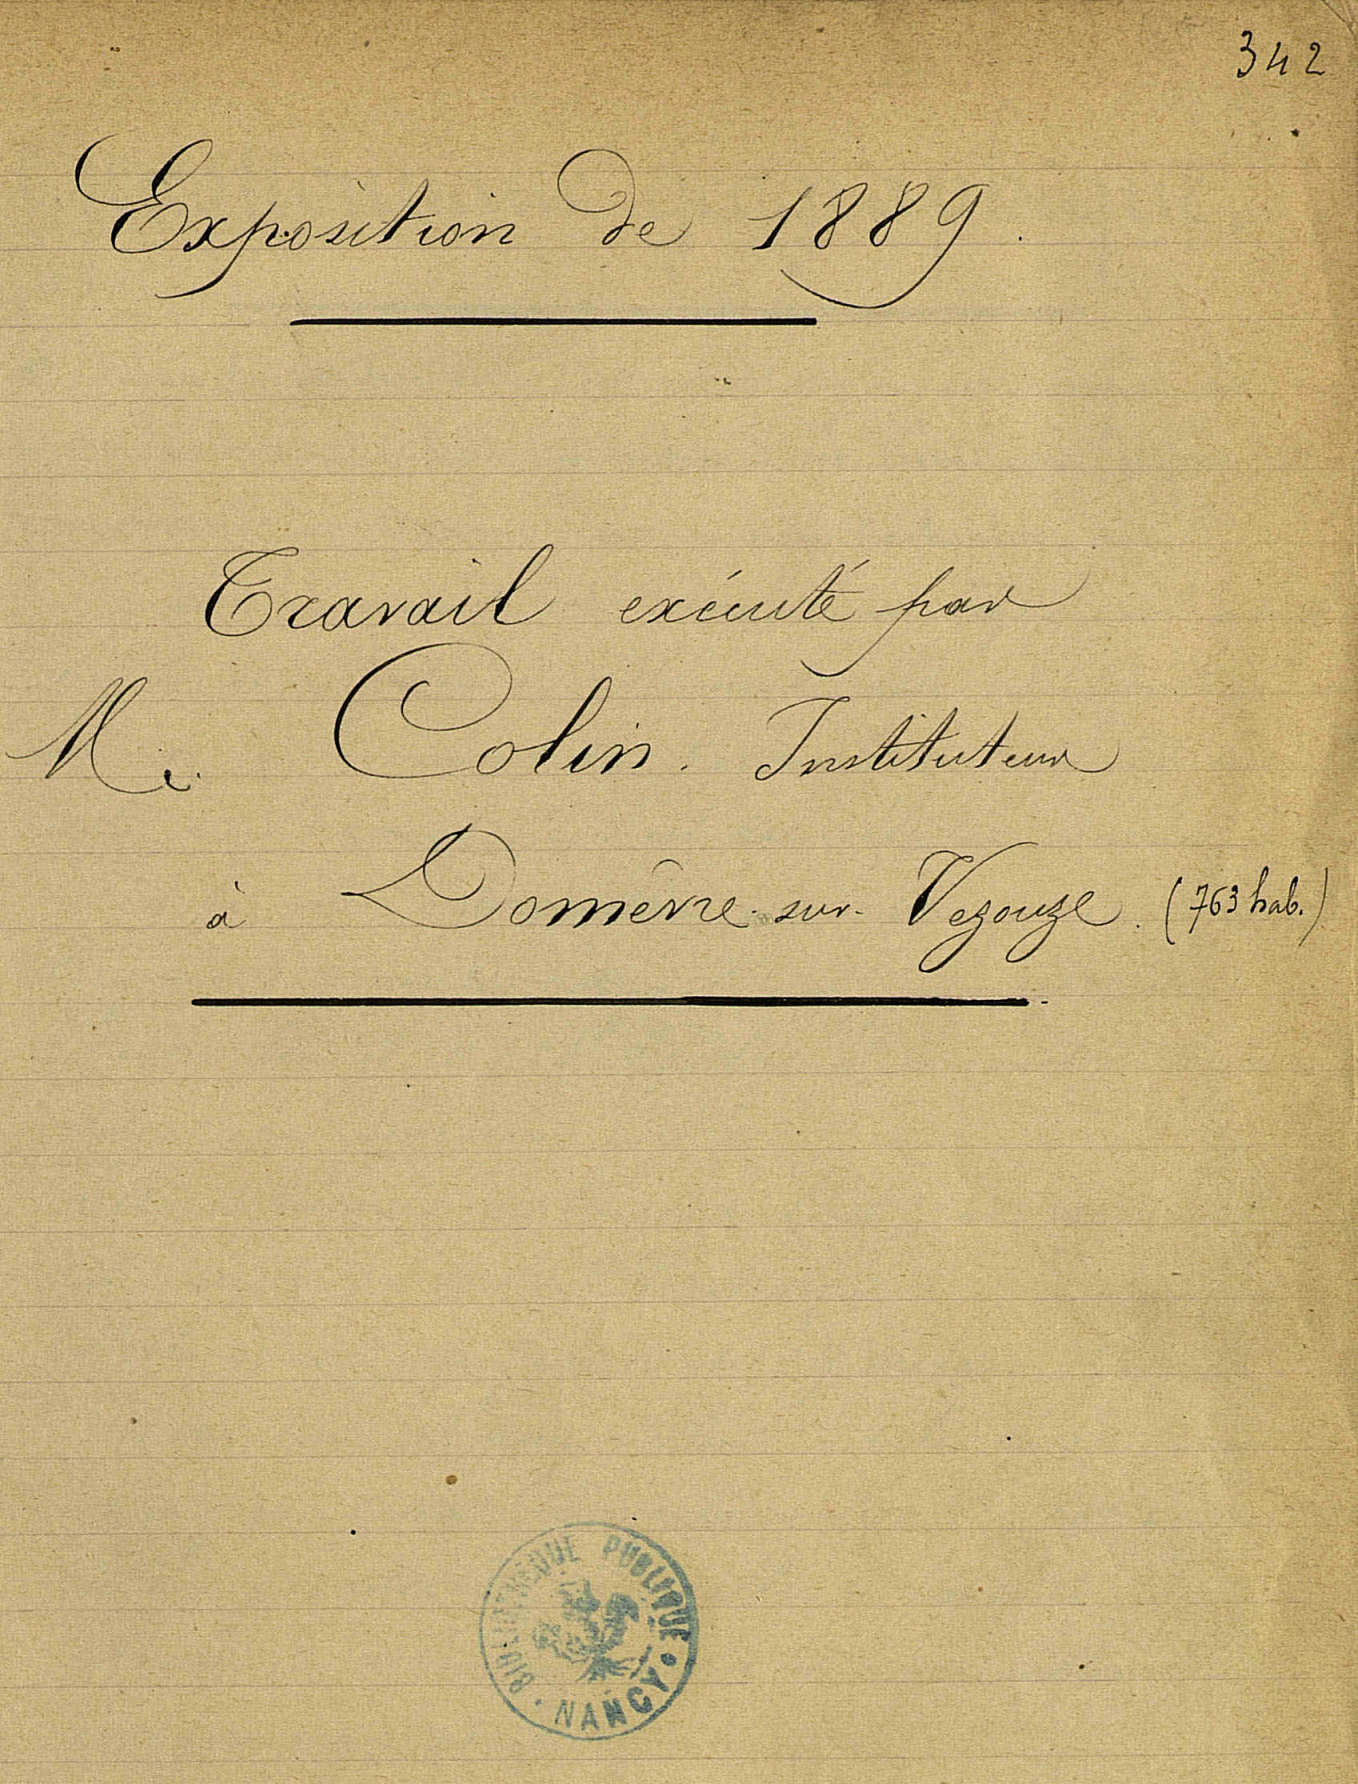 342
Exposition de 1889.
Travail exécuté par
M. Colin. Instituteur
à Domèvre-sur-Vezouze. (763 hab.)
BIBLIOTHEQUE PUBLIQUE
NANCY